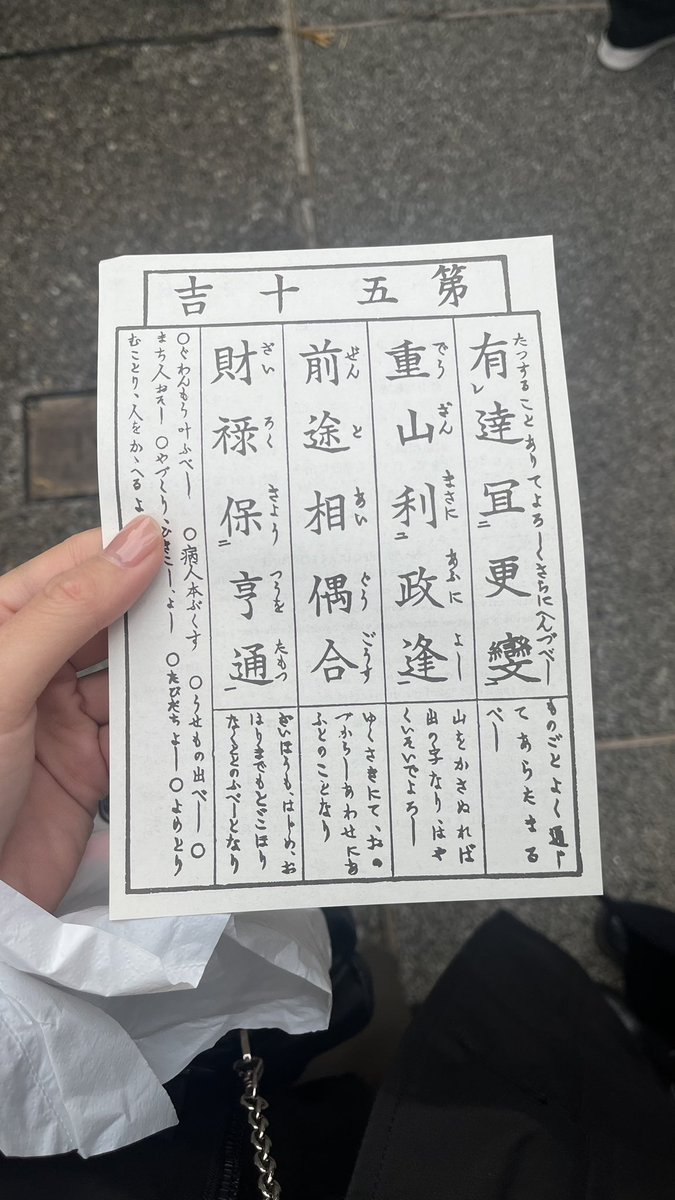 第五十吉
たつすること ありてよろしくさらにへんづべし
有レ達冝二更變一
ものごとよく通じ
てあらたまる
べし
でう ざん まさに あふに よし
重山利二政逢一
山をかさぬれば
出の字なり、はや
くいそいでよろし
ぜん と あい ぐう ごうす
前途相偶合
ゆくさきにて、おの
づからしあわせにあ
ふとのことなり
ざい ろく きよう つうを たもつ
財禄保二亨通一
ざいほうも、はじめ、お
はりまでもとどこほり
なくととのふべしとなり
〇ぐわんもう叶ふべし 〇病人本ぷくす 〇うせもの出べし 〇
まち人おそし 〇やづくり、ひきこし、よし 〇たびだちよし 〇よめとり
むことり、人をかゝへるよ